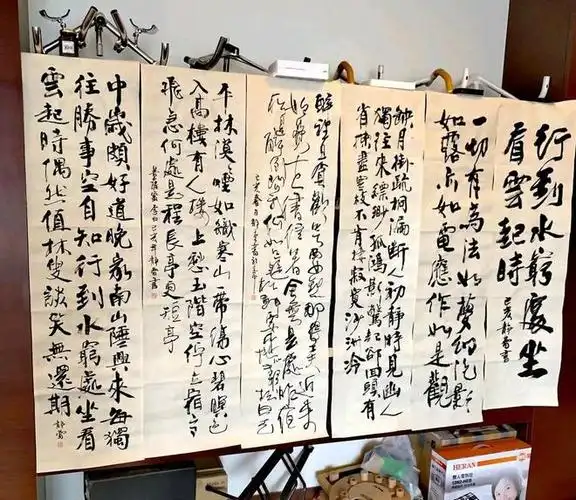 行到水窮處坐
看雲起時
己亥静雲書
一切有為法如夢幻泡影
如露亦如電應作如是觀
缺月掛疏桐漏斷人初靜時見幽人
獨往來縹緲孤鴻影驚起卻回頭有
省揀盡寒枝不肯棲寂寞沙洲冷
醉裡且貪歡笑要愁那得工夫近來
始覺古人書信著全無是處昨夜
平林漠漠煙如織寒山一帶傷心碧暝色
入高樓有人樓上愁玉階空佇立宿鳥
飛急何處是歸程長亭更短亭
菩薩蠻李白己亥
中歲頗好道晚家南山陲興來每獨
往勝事空自知行到水窮處坐看
雲起時偶然值林叟談笑無還期
静雲
HERAN